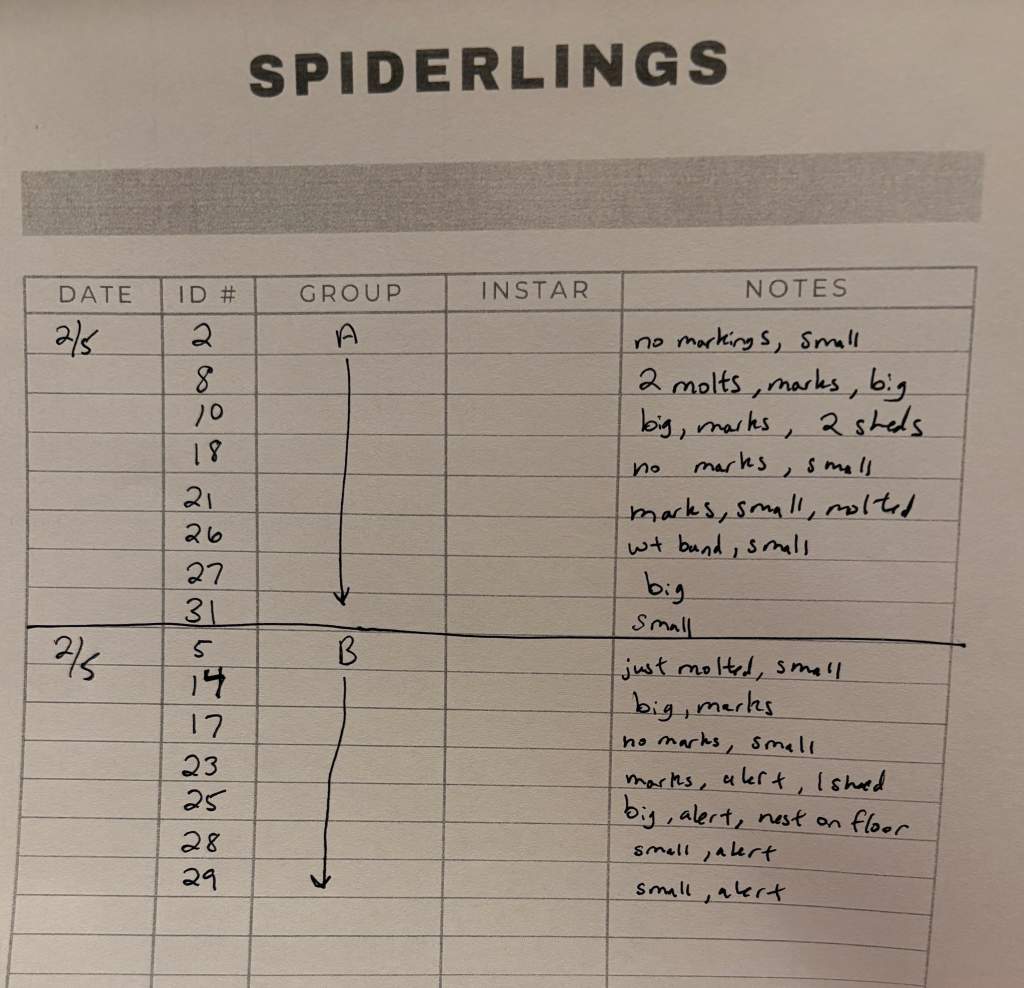 SPIDERLINGS
DATE ID # GROUP INSTAR NOTES
2/5 2 A no markings, small
8 2 molts, marks, big
10 big, marks, 2 sheds
18 no marks, small
21 marks, small, molted
26 wt band, small
27 big
31 small
2/5 5 B just molted, small
14 big, marks
17 no marks, small
23 marks, alert, 1 shed
25 big, alert, nest on floor
28 small, alert
29 small, alert